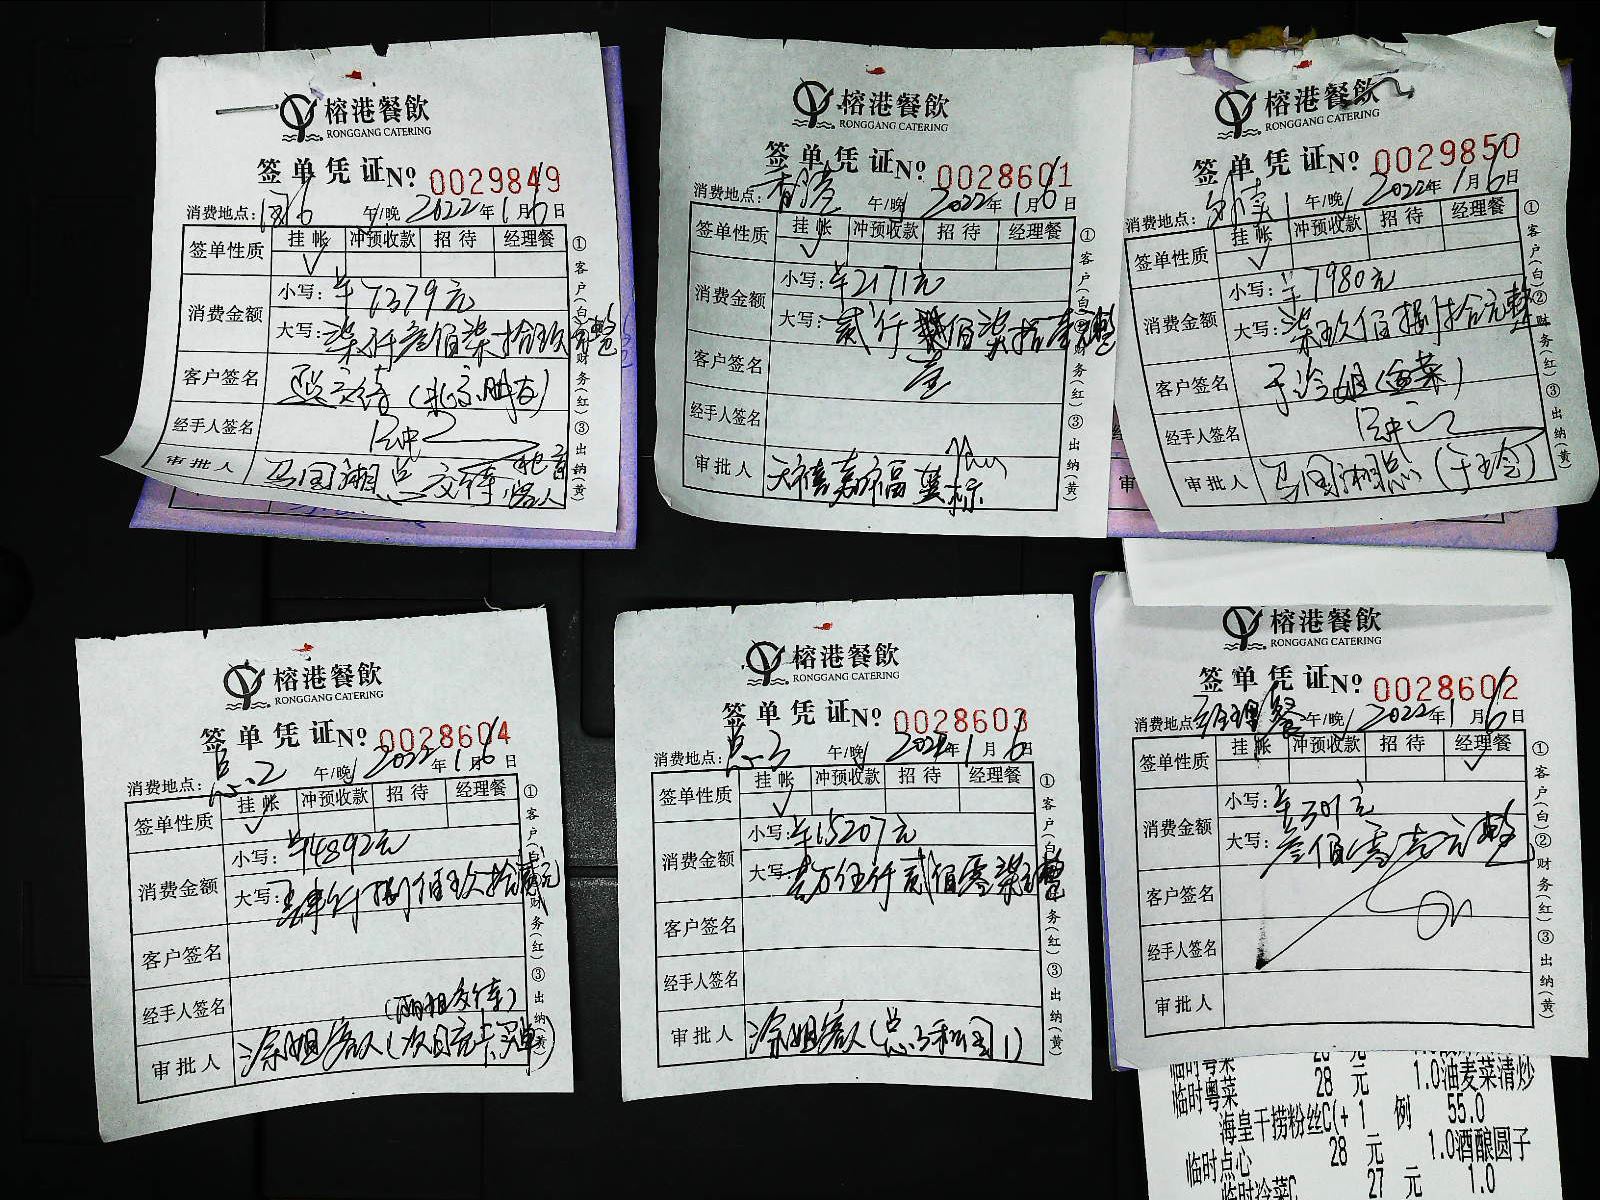 榕港餐飲
RONGGANG CATERING
签单凭证 No 0029849
消费地点: 闽6 午/晚 2022年1月6日
签单性质 挂帐 冲预收款 招待 经理餐
消费金额
小写: 7379元
大写: 柒仟叁佰柒拾玖元整
客户签名 (北京朋友)
经手人签名
审批人 马国湘总交待
①客户(白)②财务(红)③出纳(黄)
榕港餐飲
RONGGANG CATERING
签单凭证 No 0028601
消费地点: 午/晚 2022年1月6日
签单性质 挂帐 冲预收款 招待 经理餐
消费金额
小写: 2171元
大写: 贰仟壹佰柒拾壹元整
客户签名
经手人签名
审批人 天禧嘉福
①客户(白)②财务(红)③出纳(黄)
榕港餐飲
RONGGANG CATERING
签单凭证 No 0029850
消费地点: 外卖1 午/晚 2022年1月6日
签单性质 挂帐 冲预收款 招待 经理餐
消费金额
小写: 7980元
大写: 柒 玖佰捌拾元整
客户签名
经手人签名
审批人 马国湘总
①客户(白)②财务(红)③出纳(黄)
榕港餐飲
RONGGANG CATERING
签单凭证 No 0028604
消费地点: 总2 午/晚 2022年1月6日
签单性质 挂帐 冲预收款 招待 经理餐
消费金额
小写: 4892元
大写: 肆仟捌佰玖拾贰元
客户签名
经手人签名
审批人 涂姐客人(次日充卡买单)
①客户(白)②财务(红)③出纳(黄)
榕港餐飲
RONGGANG CATERING
签单凭证 No 0028603
消费地点: 总3 午/晚 2022年1月6日
签单性质 挂帐 冲预收款 招待 经理餐
消费金额
小写: 15207元
大写: 壹万伍仟贰佰零柒元整
客户签名
经手人签名
审批人 涂姐客人(总3和闽1)
①客户(白)②财务(红)③出纳(黄)
榕港餐飲
RONGGANG CATERING
签单凭证 No 0028602
消费地点 经理餐 午/晚 2022年1月6日
签单性质 挂帐 冲预收款 招待 经理餐
消费金额
小写: 301元
大写: 叁佰零壹元整
客户签名
经手人签名
审批人
①客户(白)②财务(红)③出纳(黄)
临时粤菜 28 元 1.0油麦菜清炒
海皇干捞粉丝C(+1 例 55.0
临时点心 28 元 1.0酒酿圆子
临时冷菜C 27 元 1.0